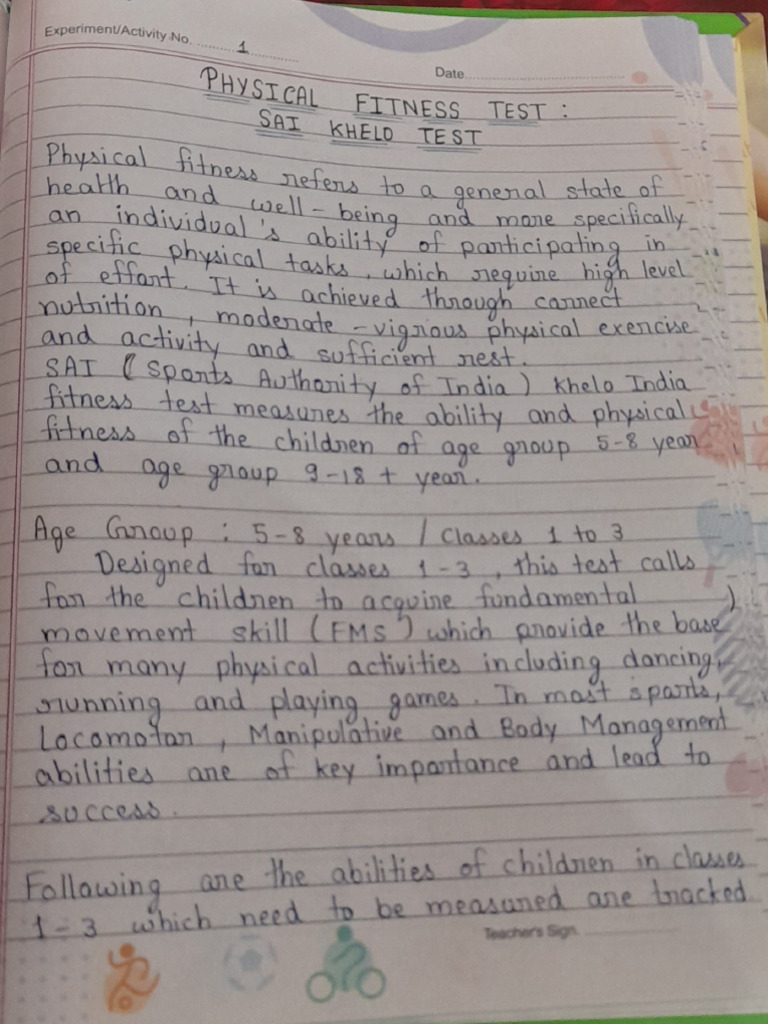 Experiment/Activity No. 1
Date
PHYSICAL FITNESS TEST :
SAI KHELO TEST
Physical fitness refers to a general state of
health and well-being and more specifically
an individual's ability of participating in
specific physical tasks, which require high level
of effort. It is achieved through correct
nutrition, moderate-vigrous physical exercise
and activity and sufficient rest.
SAI (Sports Authority of India) Khelo India
fitness test measures the ability and physical
fitness of the children of age group 5-8 year
and age group 9-18 + year.
Age Group : 5-8 years / Classes 1 to 3
Designed for classes 1-3, this test calls
for the children to acquire fundamental
movement skill (FMS) which provide the base
for many physical activities including dancing,
running and playing games. In most sports,
Locomotor, Manipulative and Body Management
abilities are of key importance and lead to
success.
Following are the abilities of children in classes
1-3 which need to be measured are tracked
Teacher's Sign.